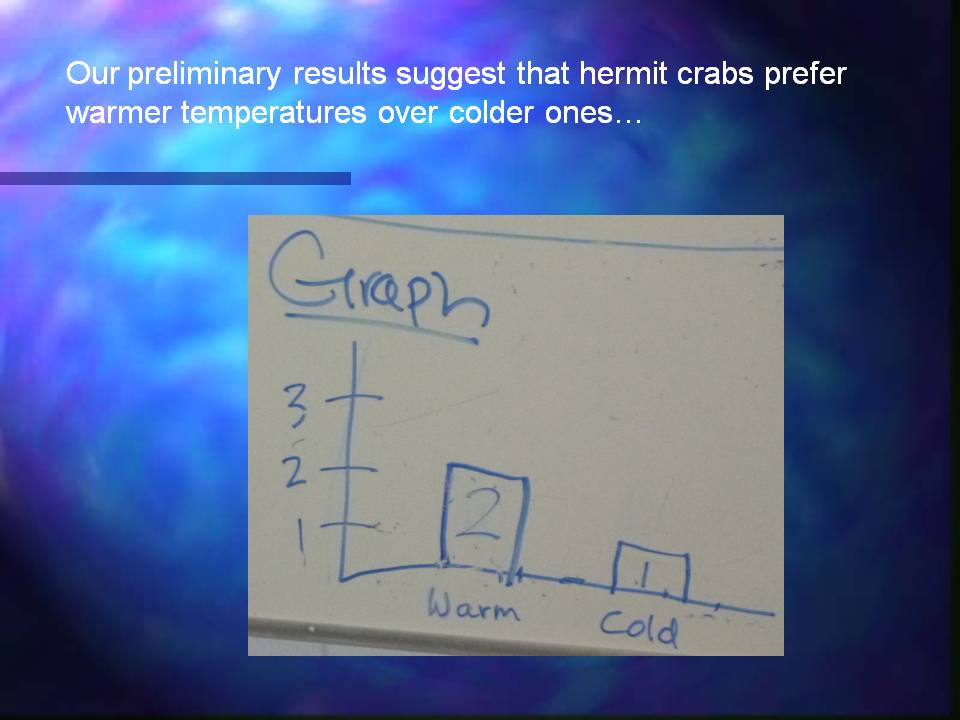 Our preliminary results suggest that hermit crabs prefer
warmer temperatures over colder ones…
Graph
3
2
1
2
1
Warm
Cold